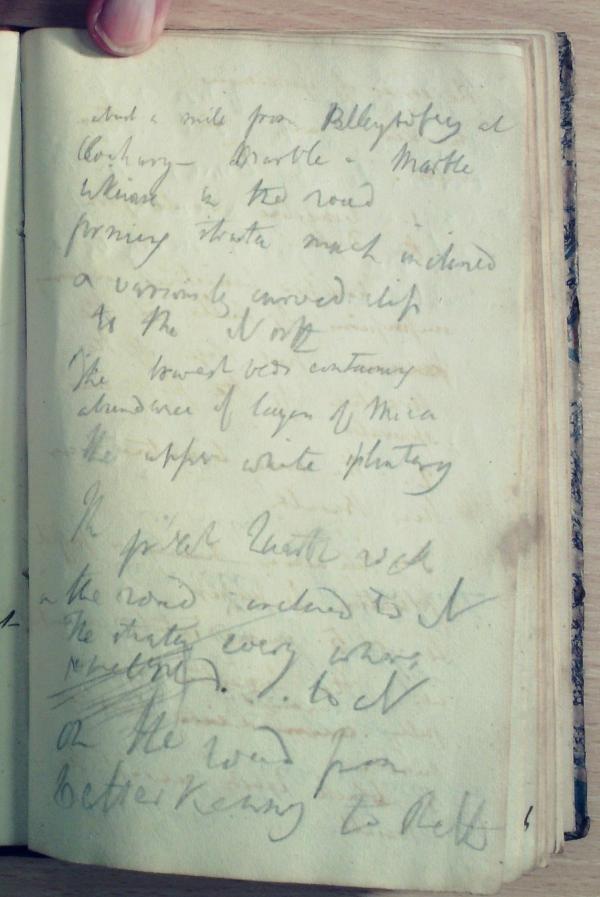 about a mile from Ballybofey at
Marble - Marble
in the road
forming strata much inclined
& variously curved dip
to the North
The lowest beds containing
abundance of layers of Mica
the upper white splintery
The first rock
in the road inclined to N
The strata every where
inclined to N
on the road from
Letterkenny to